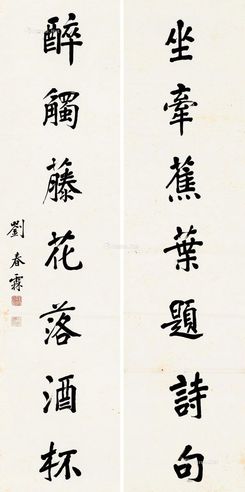 坐牽蕉葉題詩句
醉觸藤花落酒杯
劉春霖